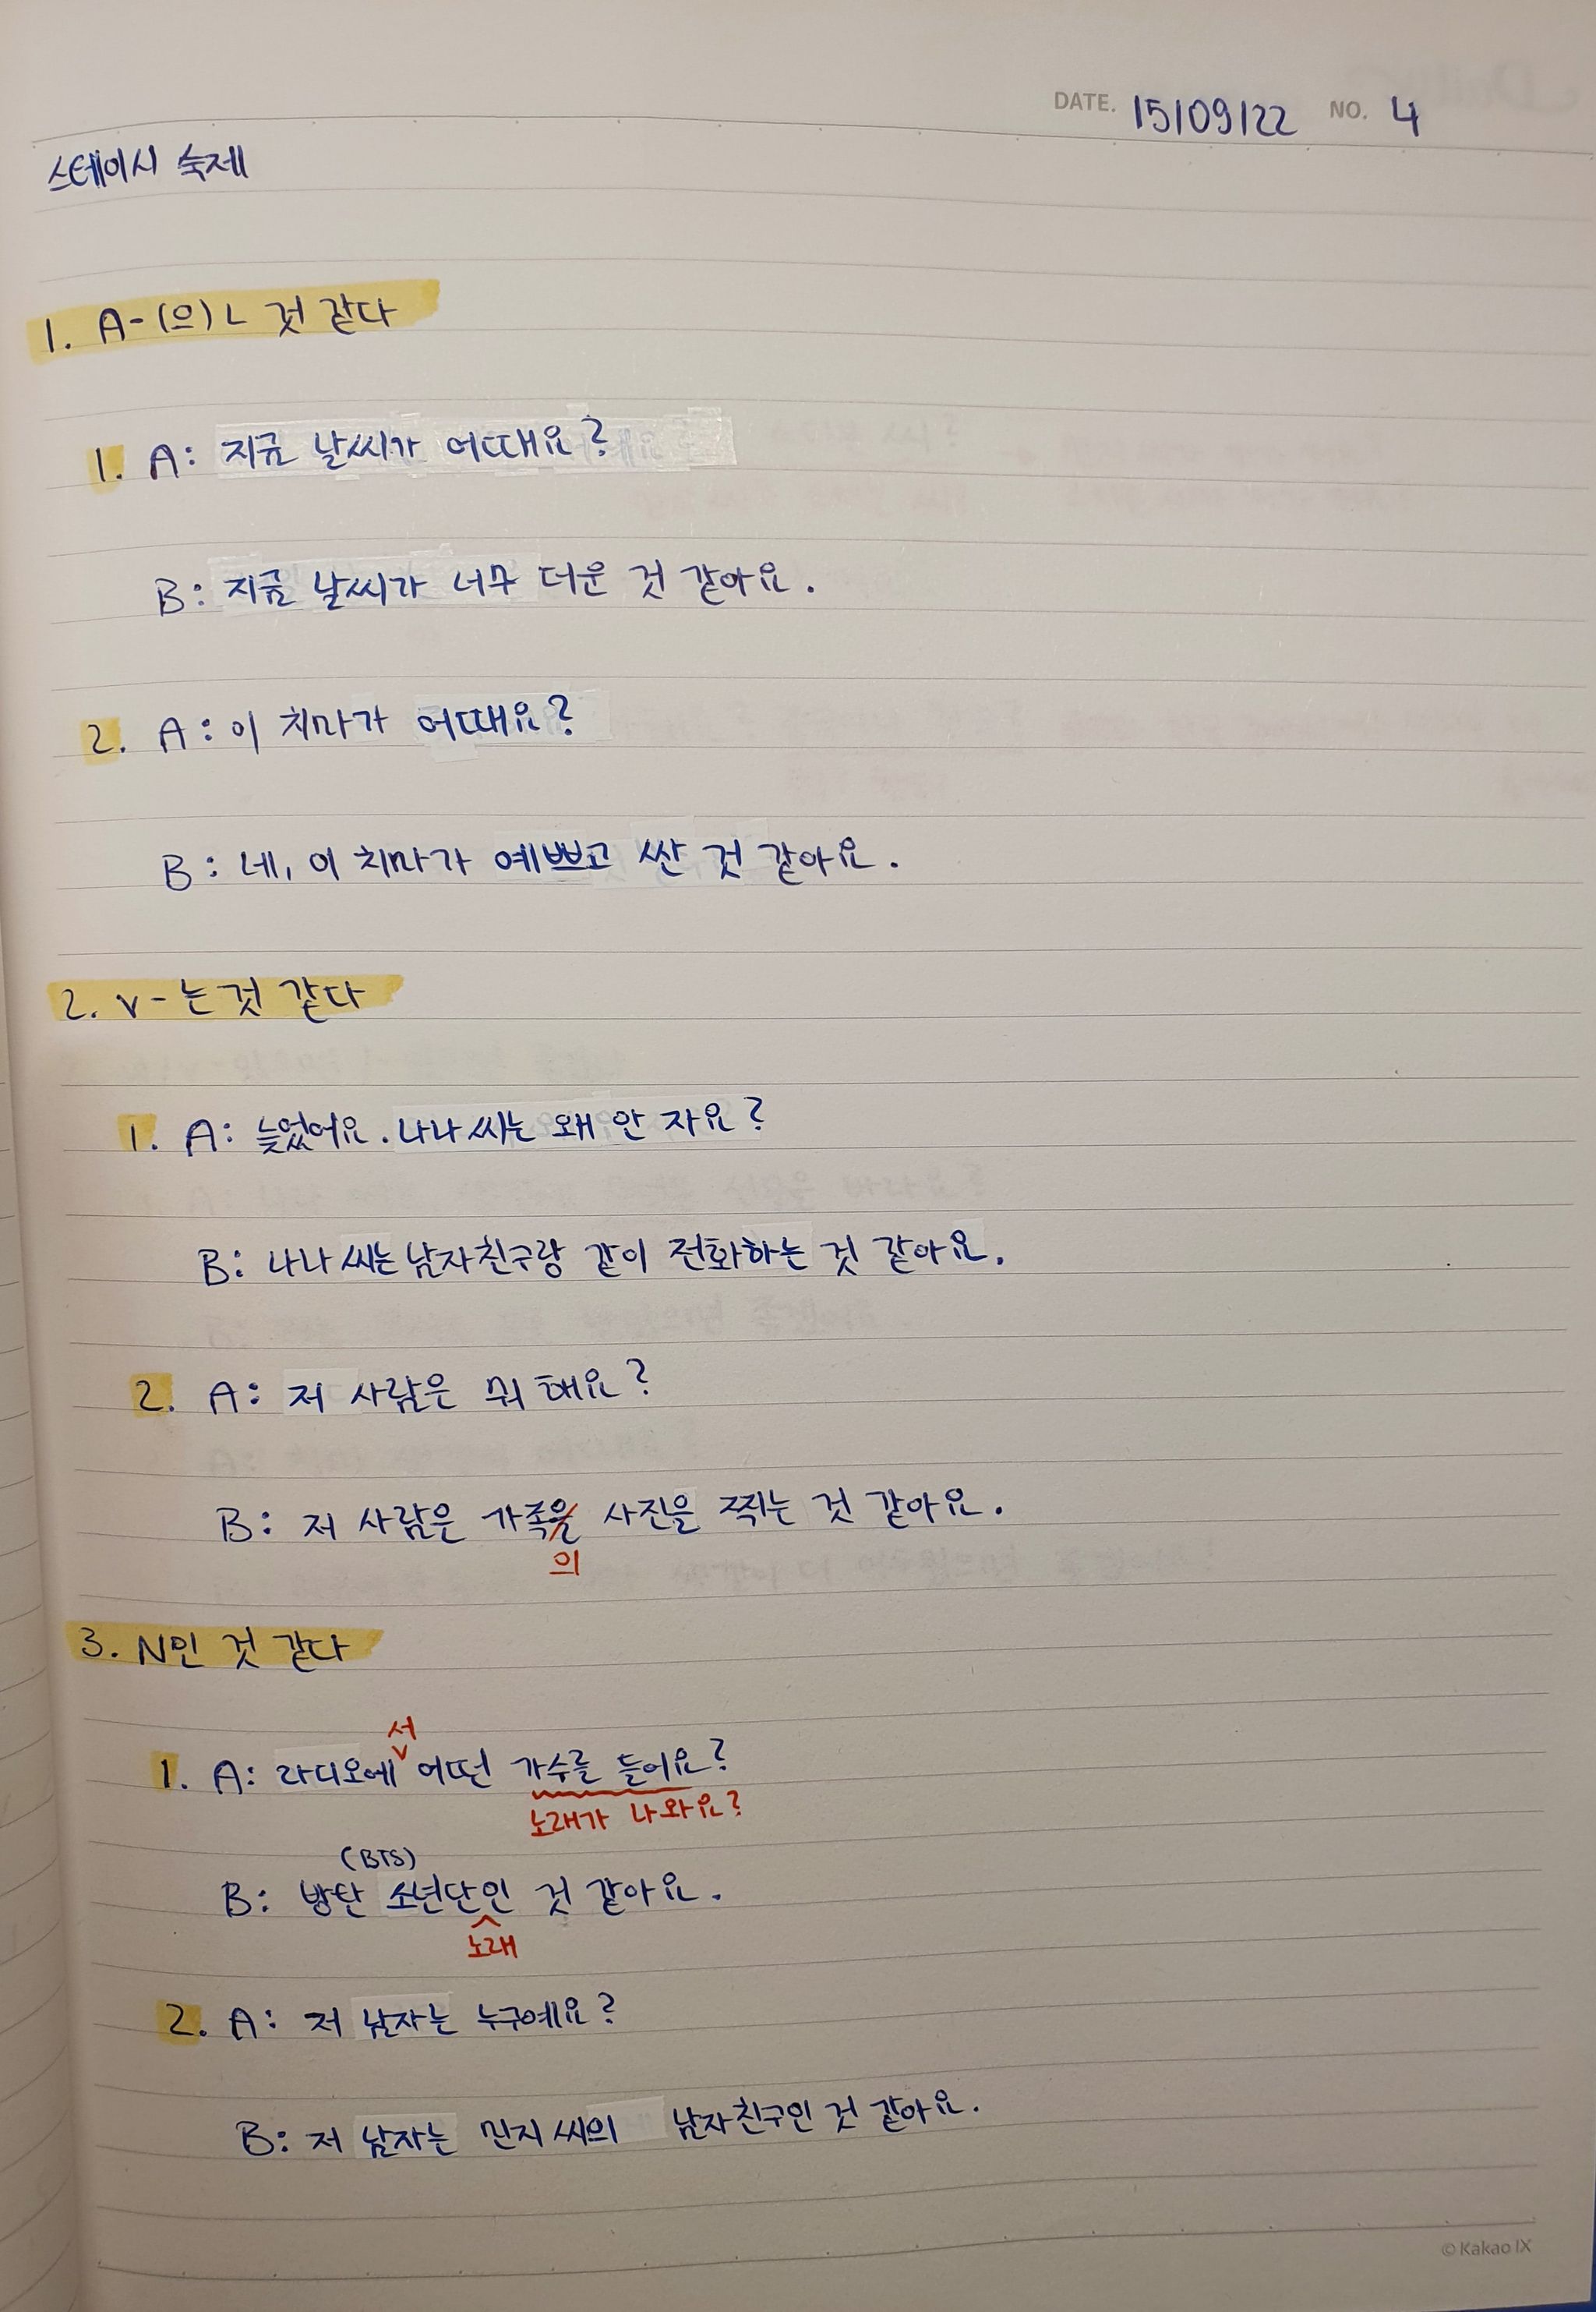 DATE. 15/09/22 NO. 4
스테이시 숙제
1. A-(으)ㄴ 것 같다
1. A: 지금 날씨가 어때요?
B: 지금 날씨가 너무 더운 것 같아요.
2. A: 이 치마가 어때요?
B: 네, 이 치마가 예쁘고 싼 것 같아요.
2. V-는 것 같다
1. A: 늦었어요. 나나 씨는 왜 안 자요?
B: 나나 씨는 남자친구랑 같이 전화하는 것 같아요.
2. A: 저 사람은 뭐 해요?
B: 저 사람은 가족을 사진을 찍는 것 같아요.
의
3. N인 것 같다
서
1. A: 라디오에 어떤 가수를 들어요?
노래가 나와요?
(BTS)
B: 방탄 소년단인 것 같아요.
노래
2. A: 저 남자는 누구예요?
B: 저 남자는 민지 씨의 남자친구인 것 같아요.
© Kakao IX